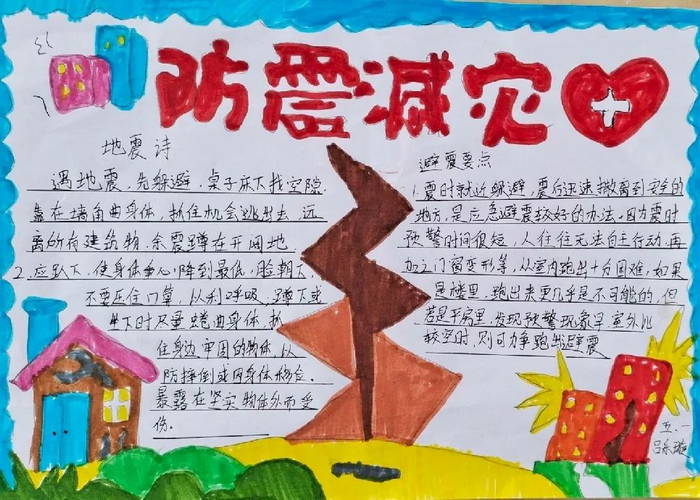 防震减灾
地震诗
遇地震,先躲避,桌子床下找空隙,
靠在墙角曲身体,抓住机会逃出去,远
离所有建筑物,余震蹲在开阔地.
2.应趴下,使身体重心降到最低,脸朝下,
不要压住口鼻,以利呼吸;蹲下或
坐下时尽量蜷曲身体,抓
住身边牢固的物体,以
防摔倒或因身体移位,
暴露在坚实物体外而受
伤。
避震要点
1.震时就近躲避,震后迅速撤离到安全的
地方,是应急避震较好的办法。因为震时
预警时间很短,人往往无法自主行动,再
加之门窗变形等,从室内跑出十分困难,如果
是楼里,跑出来更几乎是不可能的,但
若是平房里,发现预警现象早,室外比
较空时,则可力争跑出避震
五.一